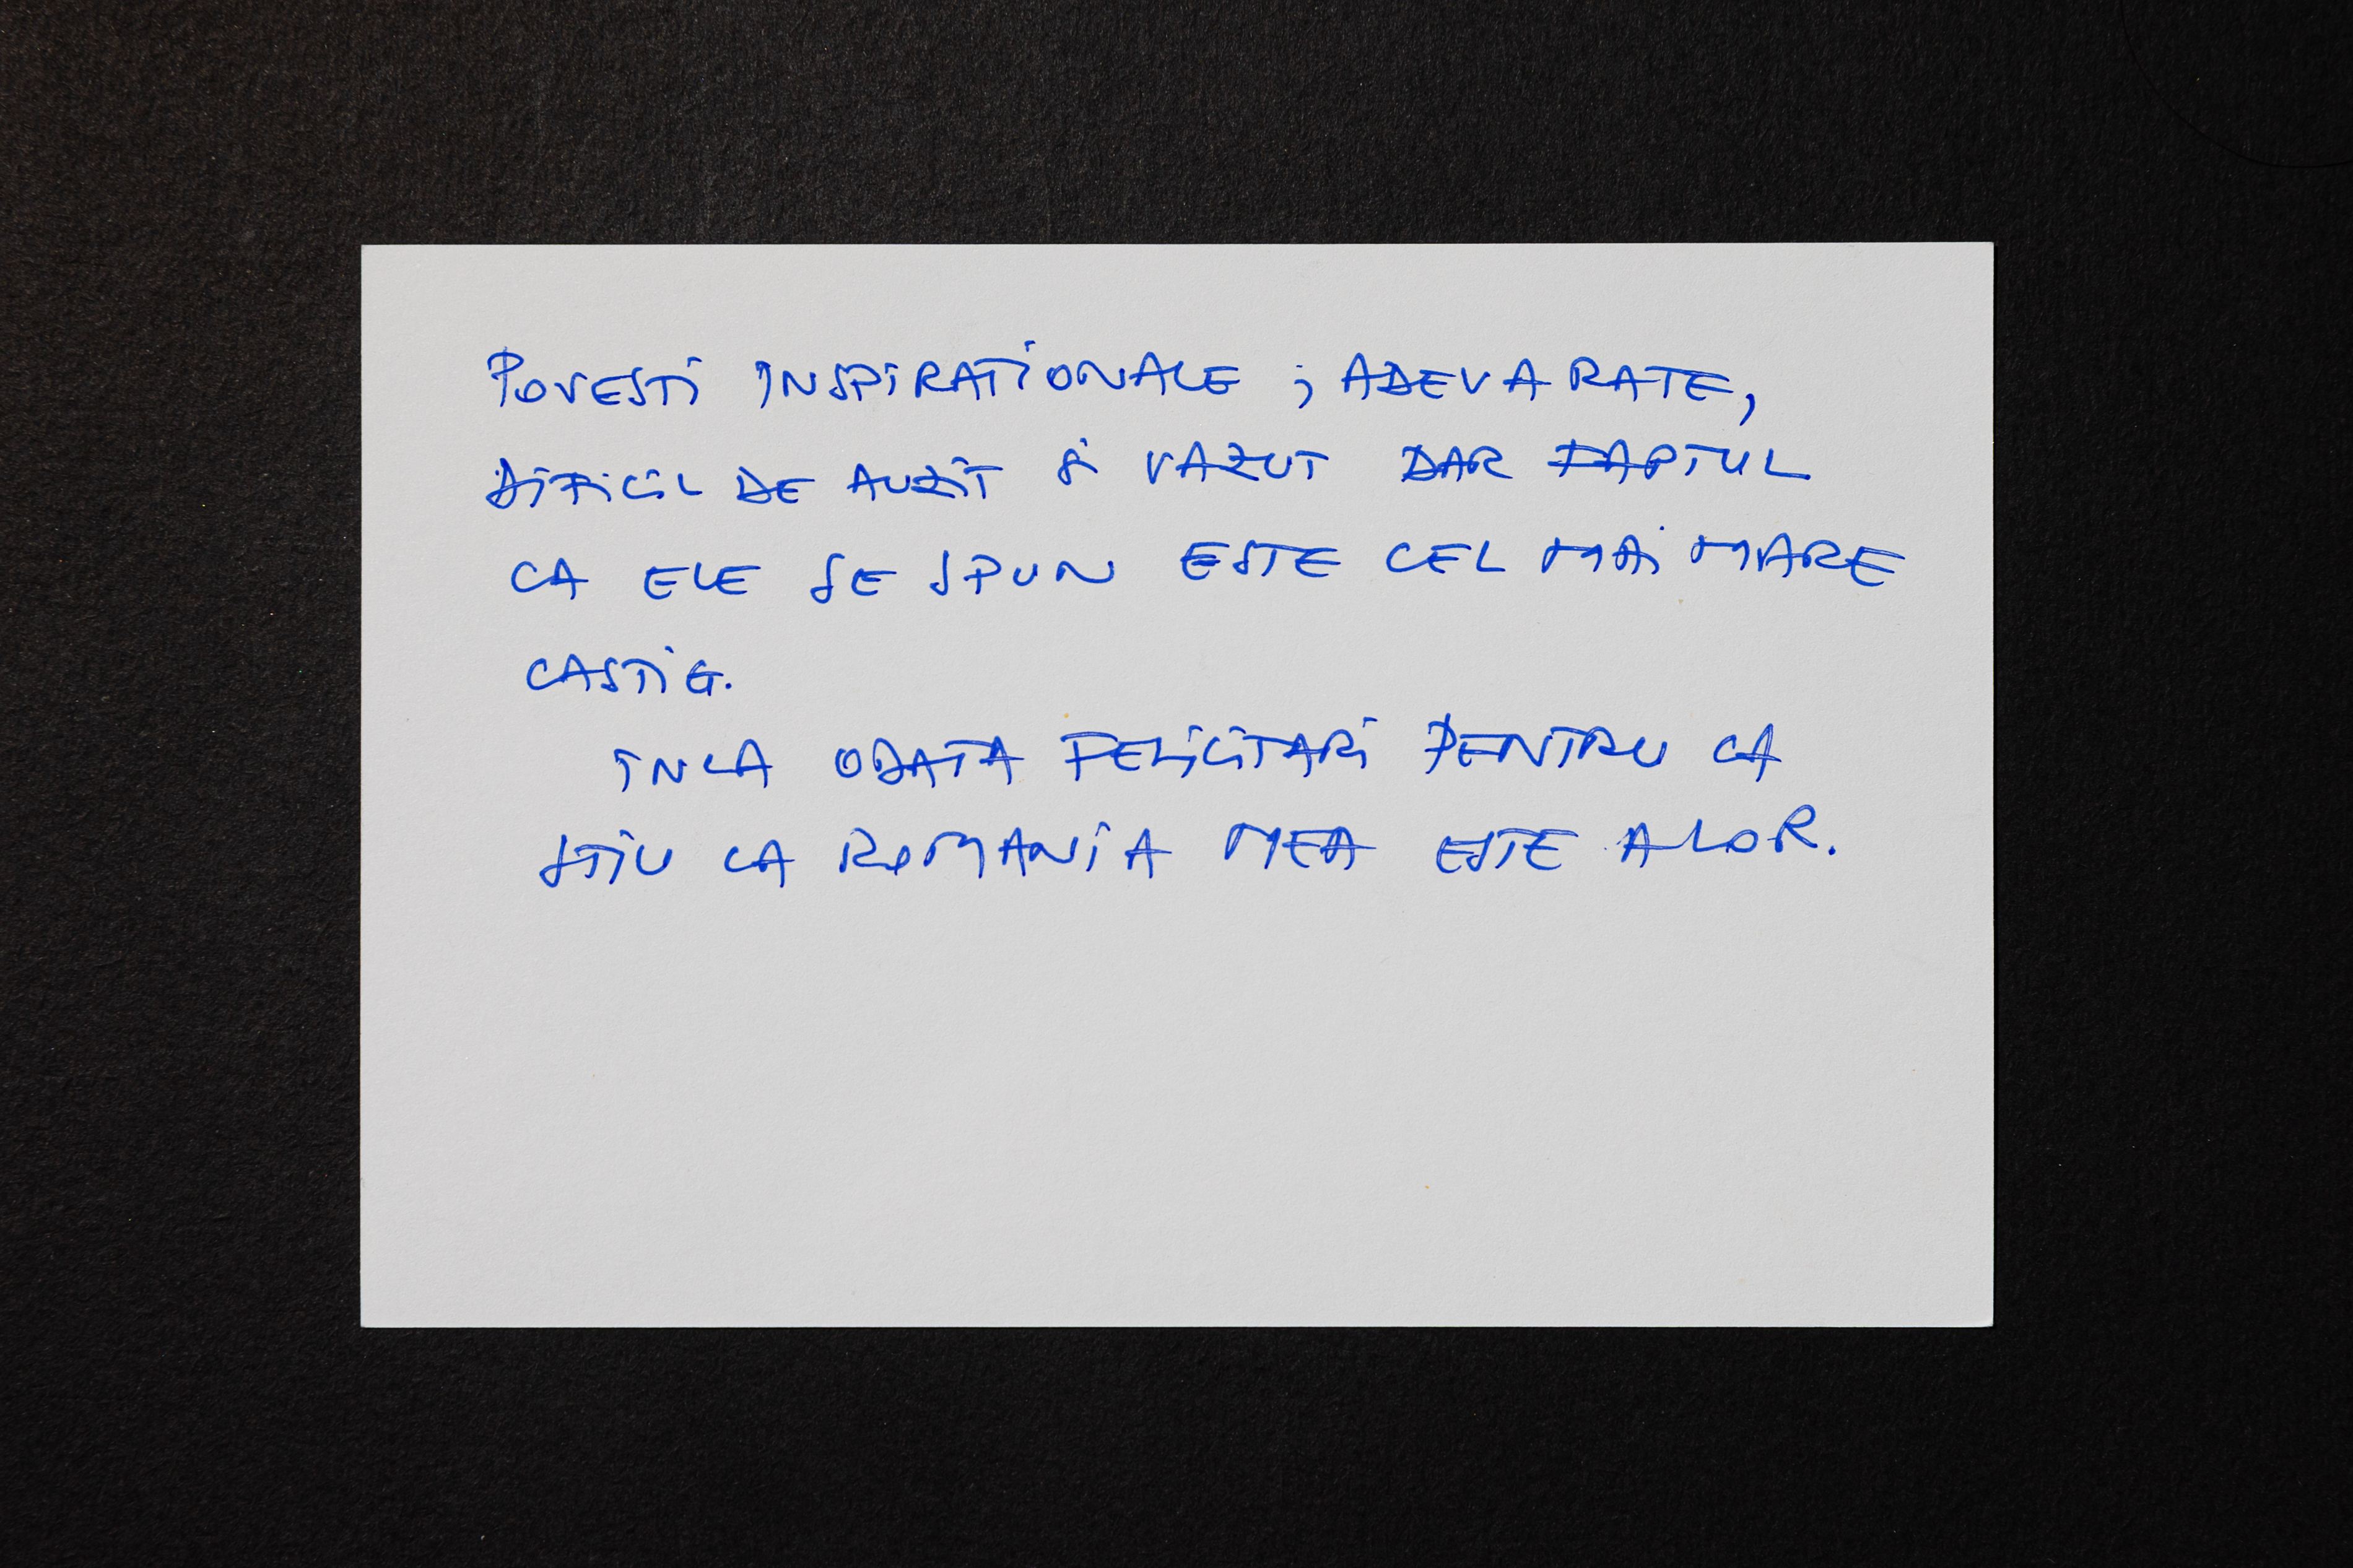 POVESTI INSPIRATIONALE ; ADEVARATE,
DIFICIL DE AUZIT SI VAZUT DAR FAPTUL
CA ELE SE SPUN ESTE CEL MAI MARE
CASTIG.
INCA ODATA FELICITARI PENTRU CA
STIU CA ROMANIA MEA ESTE ALOR.